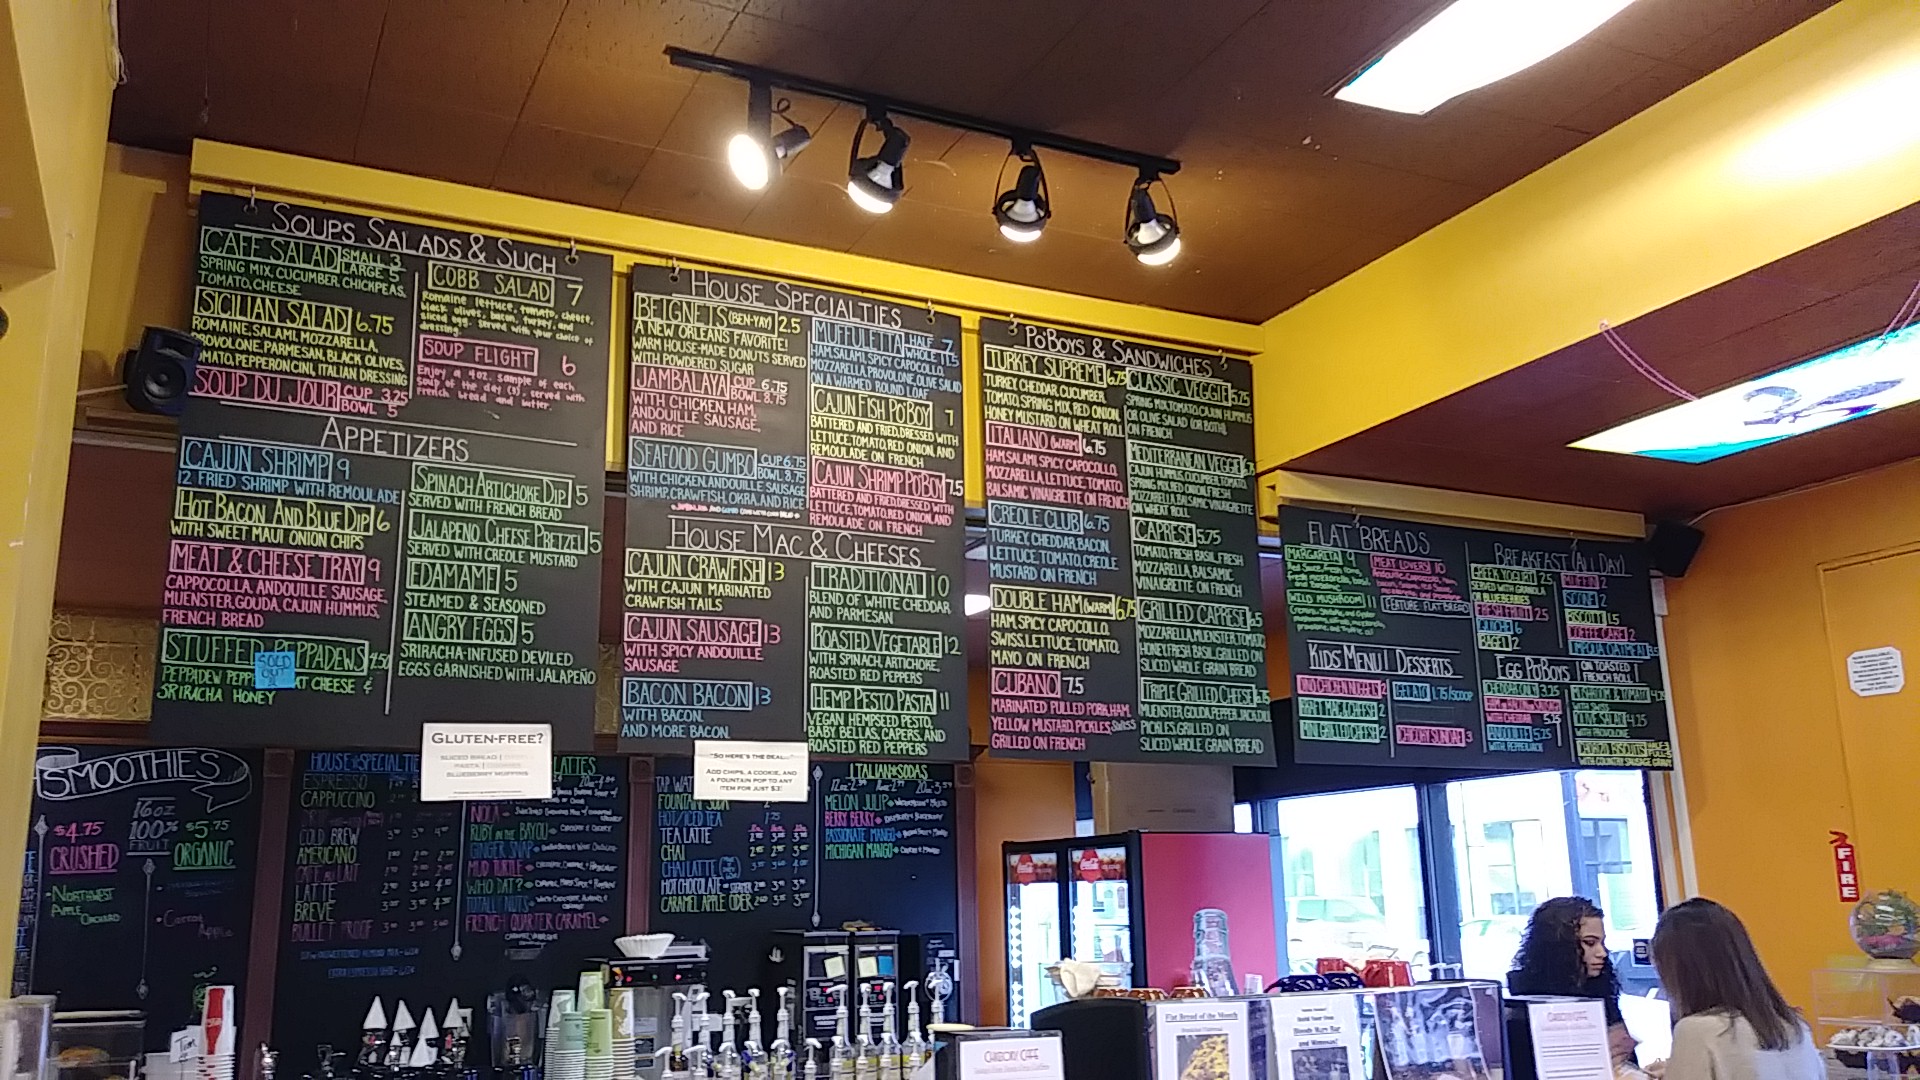 SOUPS SALADS & SUCH
CAFE SALAD SMALL 3
LARGE 5
SPRING MIX, CUCUMBER, CHICKPEAS,
TOMATO, CHEESE
SICILIAN SALAD 6.75
ROMAINE, SALAMI, MOZZARELLA,
PROVOLONE, PARMESAN, BLACK OLIVES,
TOMATO, PEPPERONCINI, ITALIAN DRESSING
SOUP DU JOUR CUP 3.25
BOWL 5
COBB SALAD 7
Romaine lettuce, tomato, cheese,
black olives, bacon, turkey, and
sliced egg. served with your choice of
dressing
SOUP FLIGHT 6
Enjoy a 4oz. sample of each
soup of the day (3), served with
french bread and butter.
APPETIZERS
CAJUN SHRIMP 9
12 FRIED SHRIMP WITH REMOULADE
HOT BACON AND BLUE DIP 6
WITH SWEET MAUI ONION CHIPS
MEAT & CHEESE TRAY 9
CAPPOCOLLA, ANDOUILLE SAUSAGE,
MUENSTER, GOUDA, CAJUN HUMMUS,
FRENCH BREAD
STUFFED PEPPADEWS 4.50
SOLD
OUT
PEPPADEW PEPP AT CHEESE &
SRIRACHA HONEY
SPINACH ARTICHOKE DIP 5
SERVED WITH FRENCH BREAD
JALAPENO CHEESE PRETZEL 5
SERVED WITH CREOLE MUSTARD
EDAMAME 5
STEAMED & SEASONED
ANGRY EGGS 5
SRIRACHA-INFUSED DEVILED
EGGS GARNISHED WITH JALAPEÑO
HOUSE SPECIALTIES
BEIGNETS (BEN-YAY) 2.5
A NEW ORLEANS FAVORITE!
WARM HOUSE-MADE DONUTS SERVED
WITH POWDERED SUGAR
JAMBALAYA CUP 6.75
BOWL 8.75
WITH CHICKEN, HAM,
ANDOUILLE SAUSAGE,
AND RICE
SEAFOOD GUMBO CUP 6.75
BOWL 8.75
WITH CHICKEN, ANDOUILLE SAUSAGE
SHRIMP, CRAWFISH, OKRA, AND RICE
MUFFULETTA HALF 7
WHOLE 11.5
HAM, SALAMI, SPICY CAPOCOLLO,
MOZZARELLA, PROVOLONE, OLIVE SALAD
ON A WARMED ROUND LOAF
CAJUN FISH PO'BOY 7
BATTERED AND FRIED, DRESSED WITH
LETTUCE, TOMATO, RED ONION, AND
REMOULADE ON FRENCH
CAJUN SHRIMP PO'BOY 7.5
BATTERED AND FRIED, DRESSED WITH
LETTUCE, TOMATO, RED ONION, AND
REMOULADE ON FRENCH
HOUSE MAC & CHEESES
CAJUN CRAWFISH 13
WITH CAJUN MARINATED
CRAWFISH TAILS
CAJUN SAUSAGE 13
WITH SPICY ANDOUILLE
SAUSAGE
BACON BACON 13
WITH BACON.
AND MORE BACON.
TRADITIONAL 10
BLEND OF WHITE CHEDDAR
AND PARMESAN
ROASTED VEGETABLE 12
WITH SPINACH, ARTICHOKE,
ROASTED RED PEPPERS
HEMP PESTO PASTA 11
VEGAN HEMPSEED PESTO,
BABY BELLAS, CAPERS, AND
ROASTED RED PEPPERS
PO'BOYS & SANDWICHES
TURKEY SUPREME 6.75
TURKEY, CHEDDAR, CUCUMBER,
TOMATO, SPRING MIX, RED ONION,
HONEY MUSTARD ON WHEAT ROLL
ITALIANO (WARM) 6.75
HAM, SALAMI, SPICY CAPOCOLLO,
MOZZARELLA, LETTUCE, TOMATO,
BALSAMIC VINAIGRETTE ON FRENCH
CREOLE CLUB 6.75
TURKEY, CHEDDAR, BACON,
LETTUCE, TOMATO, CREOLE
MUSTARD ON FRENCH
DOUBLE HAM (WARM) 6.75
HAM, SPICY CAPOCOLLO,
SWISS, LETTUCE, TOMATO,
MAYO ON FRENCH
CUBANO 7.5
MARINATED PULLED PORK, HAM,
YELLOW MUSTARD, PICKLES, SWISS
GRILLED ON FRENCH
CLASSIC VEGGIE 5.75
SPRING MIX, TOMATO, CAJUN HUMMUS
OR OLIVE SALAD (OR BOTH),
ON FRENCH
MEDITERRANEAN VEGGIE
CAJUN HUMMUS, CUCUMBER, TOMATO,
SPRING MIX, RED ONION, FRESH
MOZZARELLA, BALSAMIC VINAIGRETTE
ON WHEAT ROLL
CAPRESE 5.75
TOMATO, FRESH BASIL, FRESH
MOZZARELLA, BALSAMIC
VINAIGRETTE ON FRENCH
GRILLED CAPRESE 6.5
MOZZARELLA, MUENSTER, TOMATO,
HONEY, FRESH BASIL, GRILLED ON
SLICED WHOLE GRAIN BREAD
TRIPLE GRILLED CHEESE 6.75
MUENSTER, GOUDA, PEPPER JACK, DILL
PICKLES, GRILLED ON
SLICED WHOLE GRAIN BREAD
FLAT BREADS
MARGARETA 9
WILD MUSHROOM 11
MEAT LOVERS 10
FEATURE FLAT BREAD
KIDS MENU
DINO CHICKEN NUGGETS 2
KRAFT MAC & CHEESE 2
MINI GRILLED CHEESE 2
DESSERTS
GELATO 1.75/SCOOP
CHICORY SUNDAE 3
BREAKFAST (ALL DAY)
GREEK YOGURT 2.5
SERVED WITH GRANOLA
OR BLUEBERRIES
FRESH FRUIT 2.5
QUICHE 6
BAGEL 2
MUFFIN 2
SCONE 2
BISCOTTI 1.5
COFFEE CAKE 2
UMPQUA OATMEAL 3.5
EGG PO'BOYS ON TOASTED
FRENCH ROLL
CHEDDAR ONLY 3.75
WITH CHEDDAR 5.25
ANDOUILLE 5.25
WITH PEPPERJACK
MUSHROOM & TOMATO 4.75
WITH SWISS
OLIVE SALAD 4.75
WITH PROVOLONE
WITH COUNTRY SAUSAGE GRAVY
GLUTEN-FREE?
SLICED BREAD
PASTA
BLUEBERRY MUFFINS
"SO HERE'S THE DEAL..."
ADD CHIPS, A COOKIE, AND
A FOUNTAIN POP TO ANY
ITEM FOR JUST $3!
SMOOTHIES
16 OZ
100%
FRUIT
$4.75
CRUSHED
$5.75
ORGANIC
NORTHWEST
APPLE
ORCHARD
CARROT
APPLE
HOUSE SPECIALTIE
ESPRESSO
CAPPUCCINO
COLD BREW
AMERICANO
CAFE AU LAIT
LATTE
BREVE
BULLET PROOF
LATTES
NOLA
RUBY IN THE BAYOU
GINGER SNAP
MUD TURTLE
WHO DAT?
TOTALLY NUTS
FRENCH QUARTER CARAMEL
TAP WAT
FOUNTAIN SODA
HOT/ICED TEA
TEA LATTE
CHAI
CHAI LATTE
HOT CHOCOLATE
CARAMEL APPLE CIDER
ITALIAN SODAS
MELON JULIP
BERRY BERRY
PASSIONATE MANGO
MICHIGAN MANGO
FIRE
Coca-Cola
Flat Bread of the Month
Build Your Own
Bloody Mary Bar
and Mimosas!
CHICORY CAFE
CHICORY CAFE